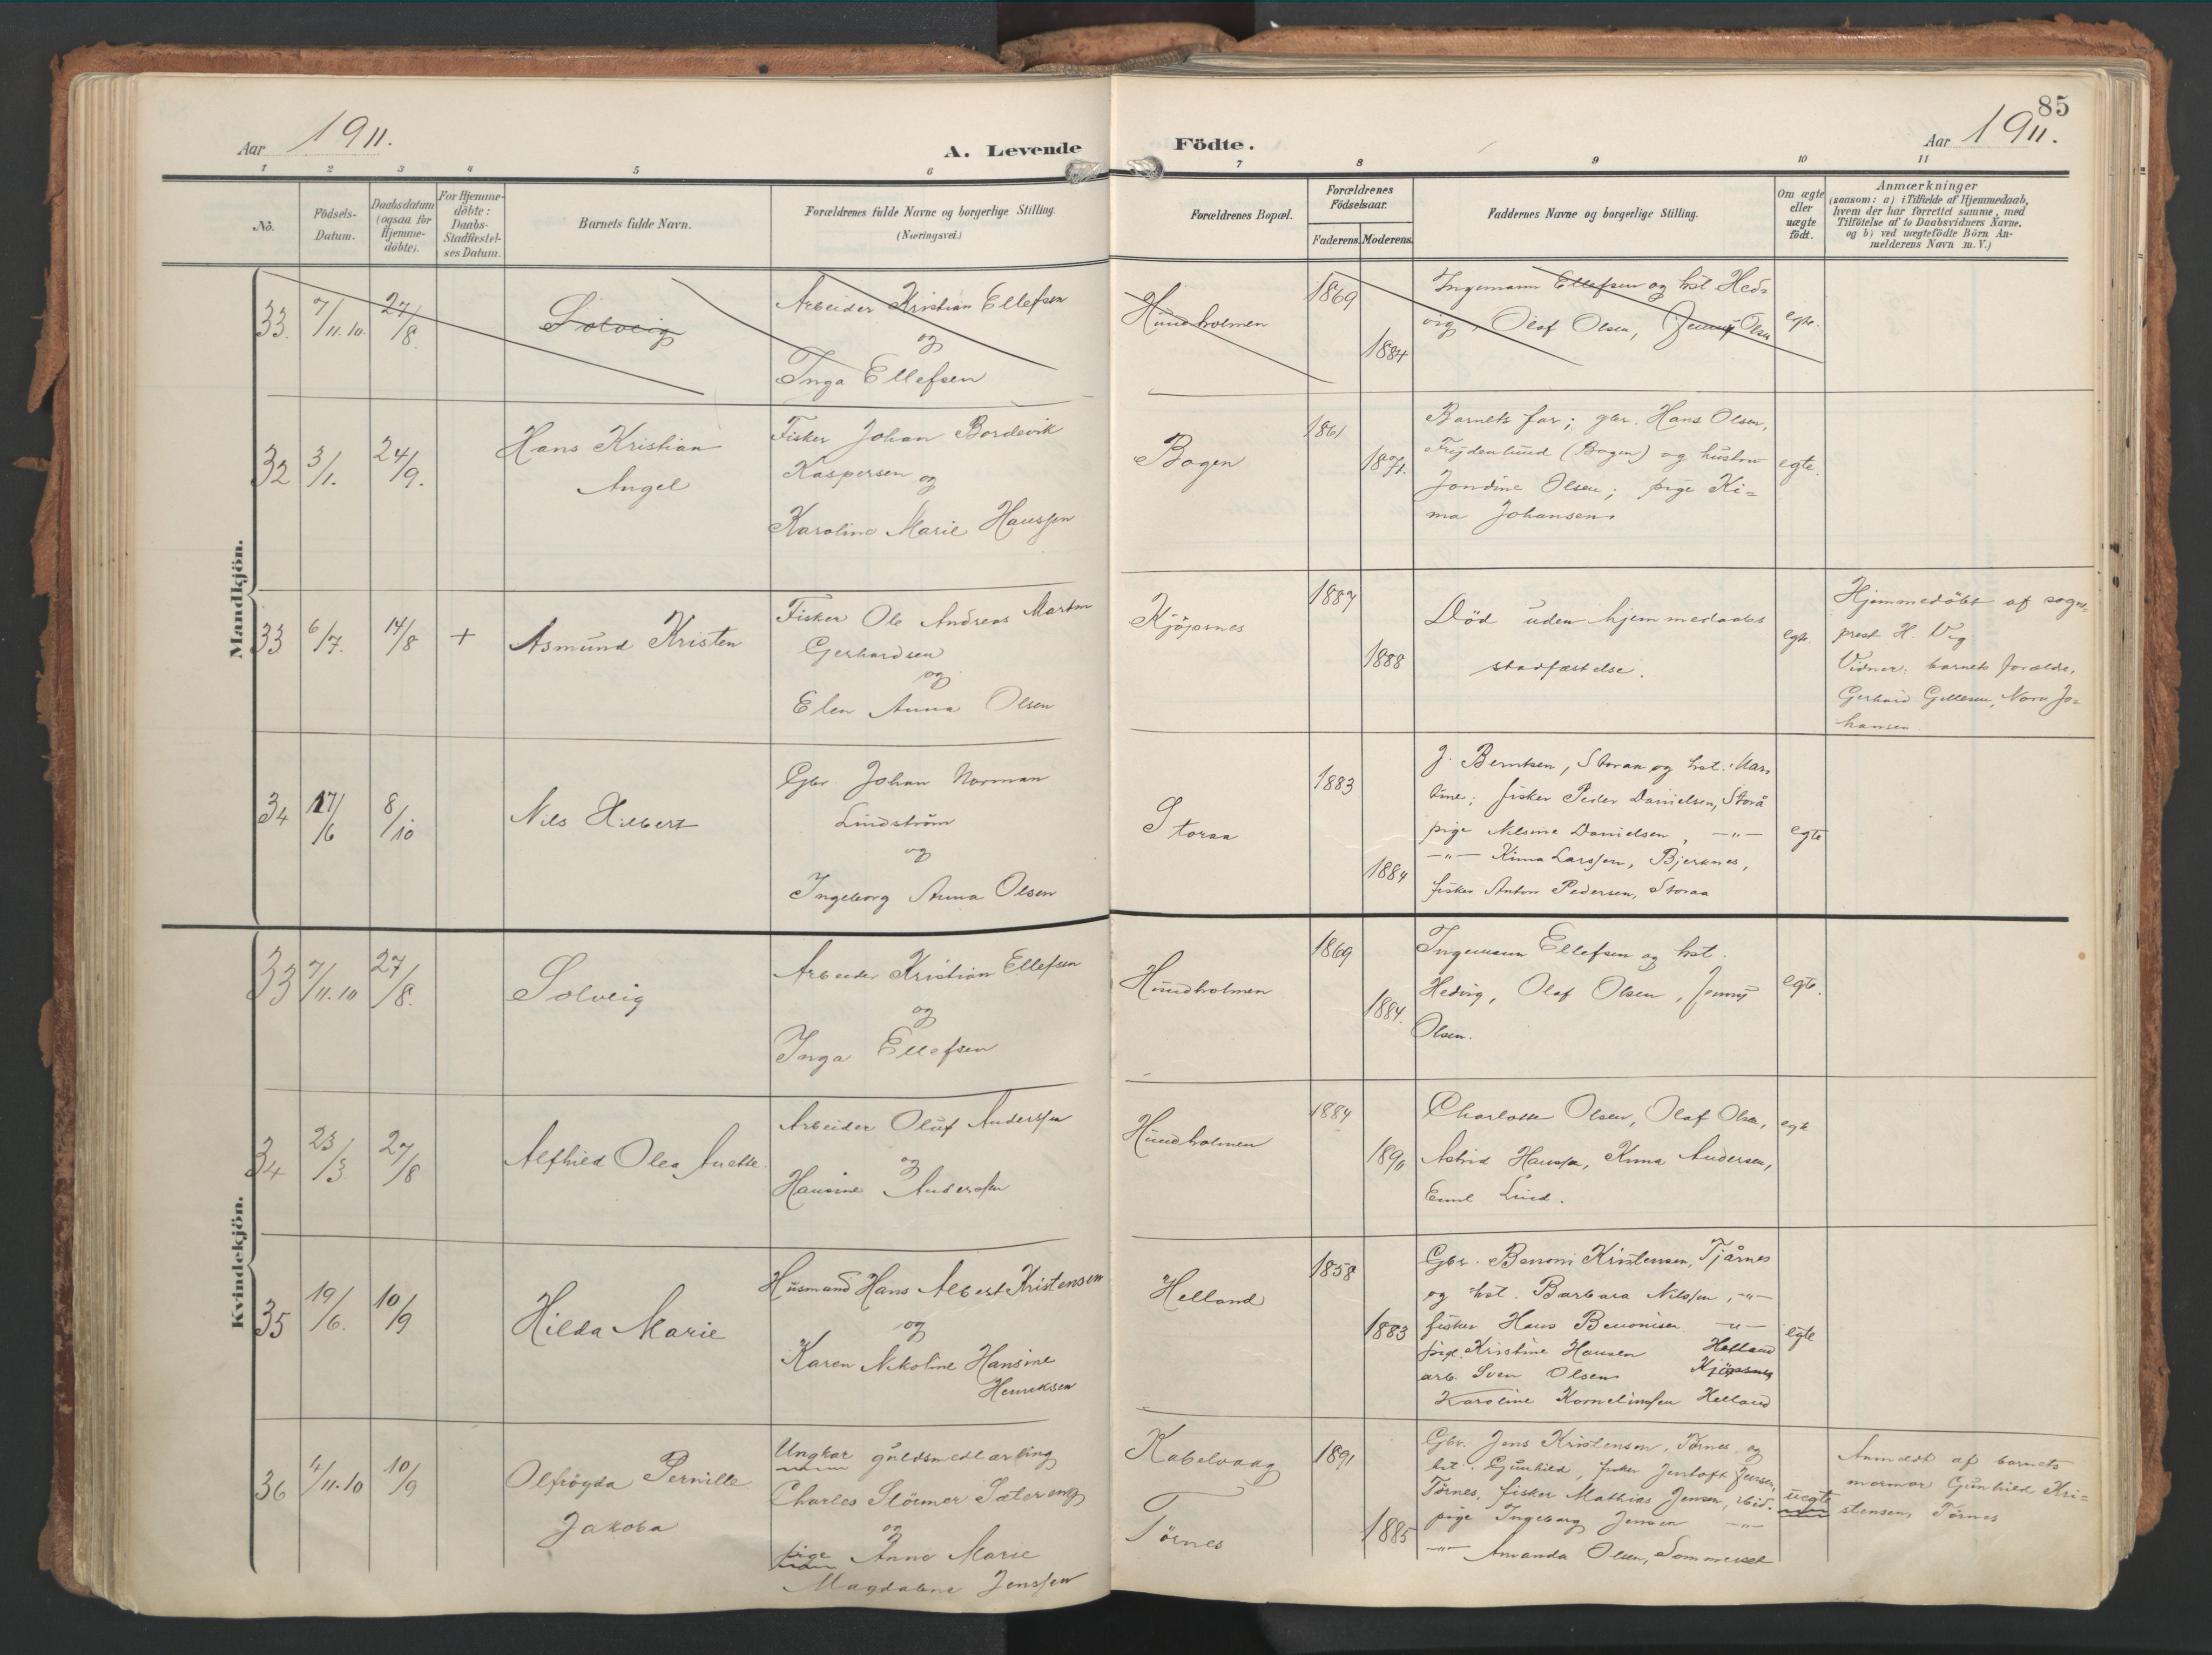 85
Aar 1911.
A. Levende
Födte.
Aar 1911.
1 2 3 4 5 6 7 8 9 10 11
No.
Födsels-
Datum.
Daabsdatum
(ogsaa for
Hjemme-
döbte).
For Hjemme-
döbte:
Daabs-
Stadfæstel-
ses Datum.
Barnets fulde Navn.
Forældrenes fulde Navne og borgerlige Stilling.
(Næringsvei.)
Forældrenes Bopæl.
Forældrenes
Födselsaar.
Faderens. Moderens.
Faddernes Navne og borgerlige Stilling.
Om ægte
eller
uægte
födt.
Anmærkninger
(saasom: a) i Tilfælde af Hjemmedaab,
hvem der har forrettet samme, med
Tilföielse af to Daabsvidners Navne,
og b) ved uægtefödte Börn An-
melderens Navn m. V.)
Mandkjön.
33. 7/11.10. 27/8.
Solveig
Arbeider Kristian Ellefsen
og
Inga Ellefsen
Hundholmen
1869
1884
Ingemann Ellefsen og hst. Hed-
vig, Olaf Olsen, Jenny Olsen
egte.
32 3/1. 24/9.
Hans Kristian
Angel
Fisker Johan Bordevik
Kaspersen og
Karoline Marie Hanssen
Bogen
1861
1871.
Barnets far; gbr. Hans Olsen,
Frydenlund (Bogen) og hustru
Jondine Olsen; pige Ki-
ma Johansen.
egte.
33 6/7. 14/8 +
Asmund Kristen
Fisker Ole Andreas Martin
Gerhardsen
og
Elen Anna Olsen
Kjöpsnes
1887
1888
Död uden hjemmedaabs
stadfæstelse.
egte.
Hjemmedöbt af sogne-
prest H. Vig.
Vidner: barnets forældre,
Gerhard Nora Jo-
hansen.
34 17/6 8/10
Nils Hilbert
Gbr. Johan Norman
Lindström
og
Ingeborg Anna Olsen
Storaa
1883
1884
J. Berntsen, Storaa og hst. Mar-
tine; fisker Peder Danielsen, Storå
pige Nilsine Danielsen, —"—
—"— Kima Larssen, Bjerknes,
fisker Anton Pedersen, Storaa
egte
Kvindekjön.
33 7/11.10 27/8.
Solveig
Arbeider Kristian Ellefsen
og
Inga Ellefsen
Hundholmen
1869
1884.
Ingemann Ellefsen og hst.
Hedvig, Olaf Olsen, Jenny
Olsen.
egte.
34 23/3 27/8
Alfhild Olea Anette.
Arbeider Oluf Anderssen
og
Hansine Anderssen
Hundholmen
1884
1890
Charlotte Olsen, Olaf Olsen,
Astrid Hanssen, Anna Andersen,
Emil Lind.
egte
35 19/6. 10/9
Hilda Marie
Husmand Hans Albert Kristensen
og
Karen Nikoline Hansine
Henriksen
Helland
1858
1883
Gbr. Benoni Kristensen, Tjårnes
og hst. Barbara Nilssen, —"—
fisker Hans Benonisen —"—
pige Kristine Hansen Helland
arb. Sven Olsen Kjöpsnes
Karoline Kornelinssen Helland
egte
36 4/11.10 10/9
Olfröyda Pernille
Jakoba
Ungkar guldsmedlærling
Charles Störmer Sætereng
og
pige Anne Marie
Magdalene Jenssen
Kabelvaag
Törnes
1891
1885
Gbr. Jens Kristensen, Törnes og
hst. Gunhild, fisker Jentoft Jensen,
Törnes, fisker Mathias Jensen, ibid.
pige Ingeborg Jensen —"—
—"— Amanda Olsen, Sommerset
uegte
Anmeldt af barnets
mormor Gunhild Kri-
stensen, Törnes